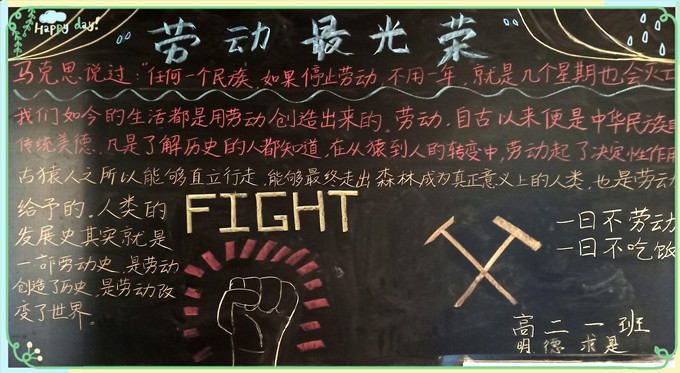 Happy day!
劳动最光荣
马克思说过："任何一个民族,如果停止劳动,不用一年,就是几个星期也会灭亡
我们如今的生活都是用劳动创造出来的。劳动,自古以来便是中华民族
传统美德。凡是了解历史的人都知道,在从猿到人的转变中,劳动起了决定性作用
古猿人之所以能够直立行走,能够最终走出森林成为真正意义上的人类,也是劳动
给予的。人类的
发展史其实就是
一部劳动史,是劳动
创造了历史,是劳动改
变了世界。
FIGHT
一日不劳动
一日不吃饭
高二一班
明德求是